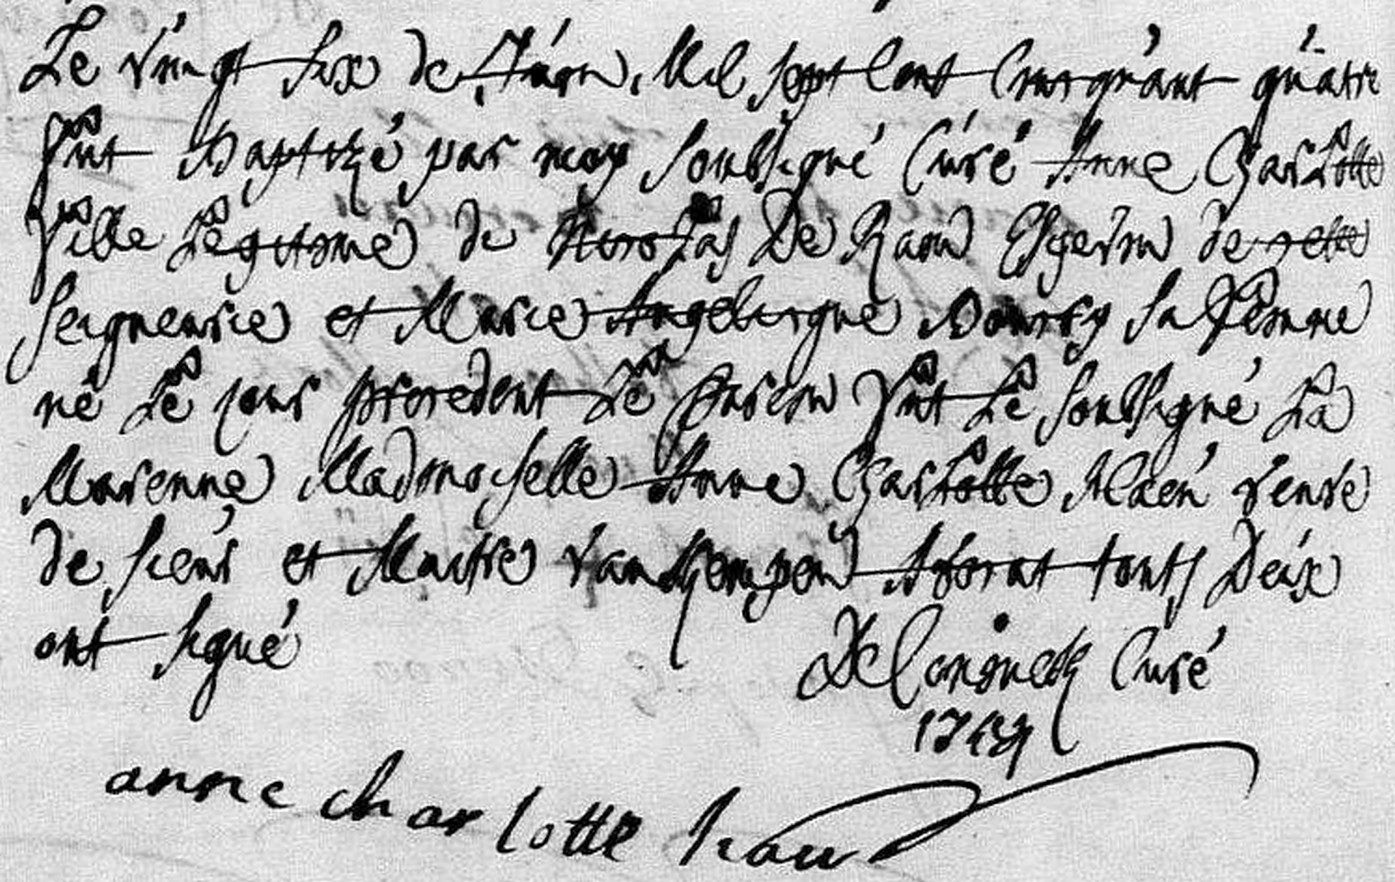 Le vingt six de Juin Mil sept Cent Cinquant quatre
fut Baptizé par moy soubsigné Curé Anne Charlotte
fille Légitime de Nicolas De Ram Echevin de cette
Seigneurie et Marie Angelique Boursy sa femme
né Le jour precedent Le Parein fut Le soubsigné La
Marenne Madmoiselle Anne Charlotte veuve
de sieur et Maitre Avocat touts Deux
ont signé De Coninck Curé
1754
anne charlotte